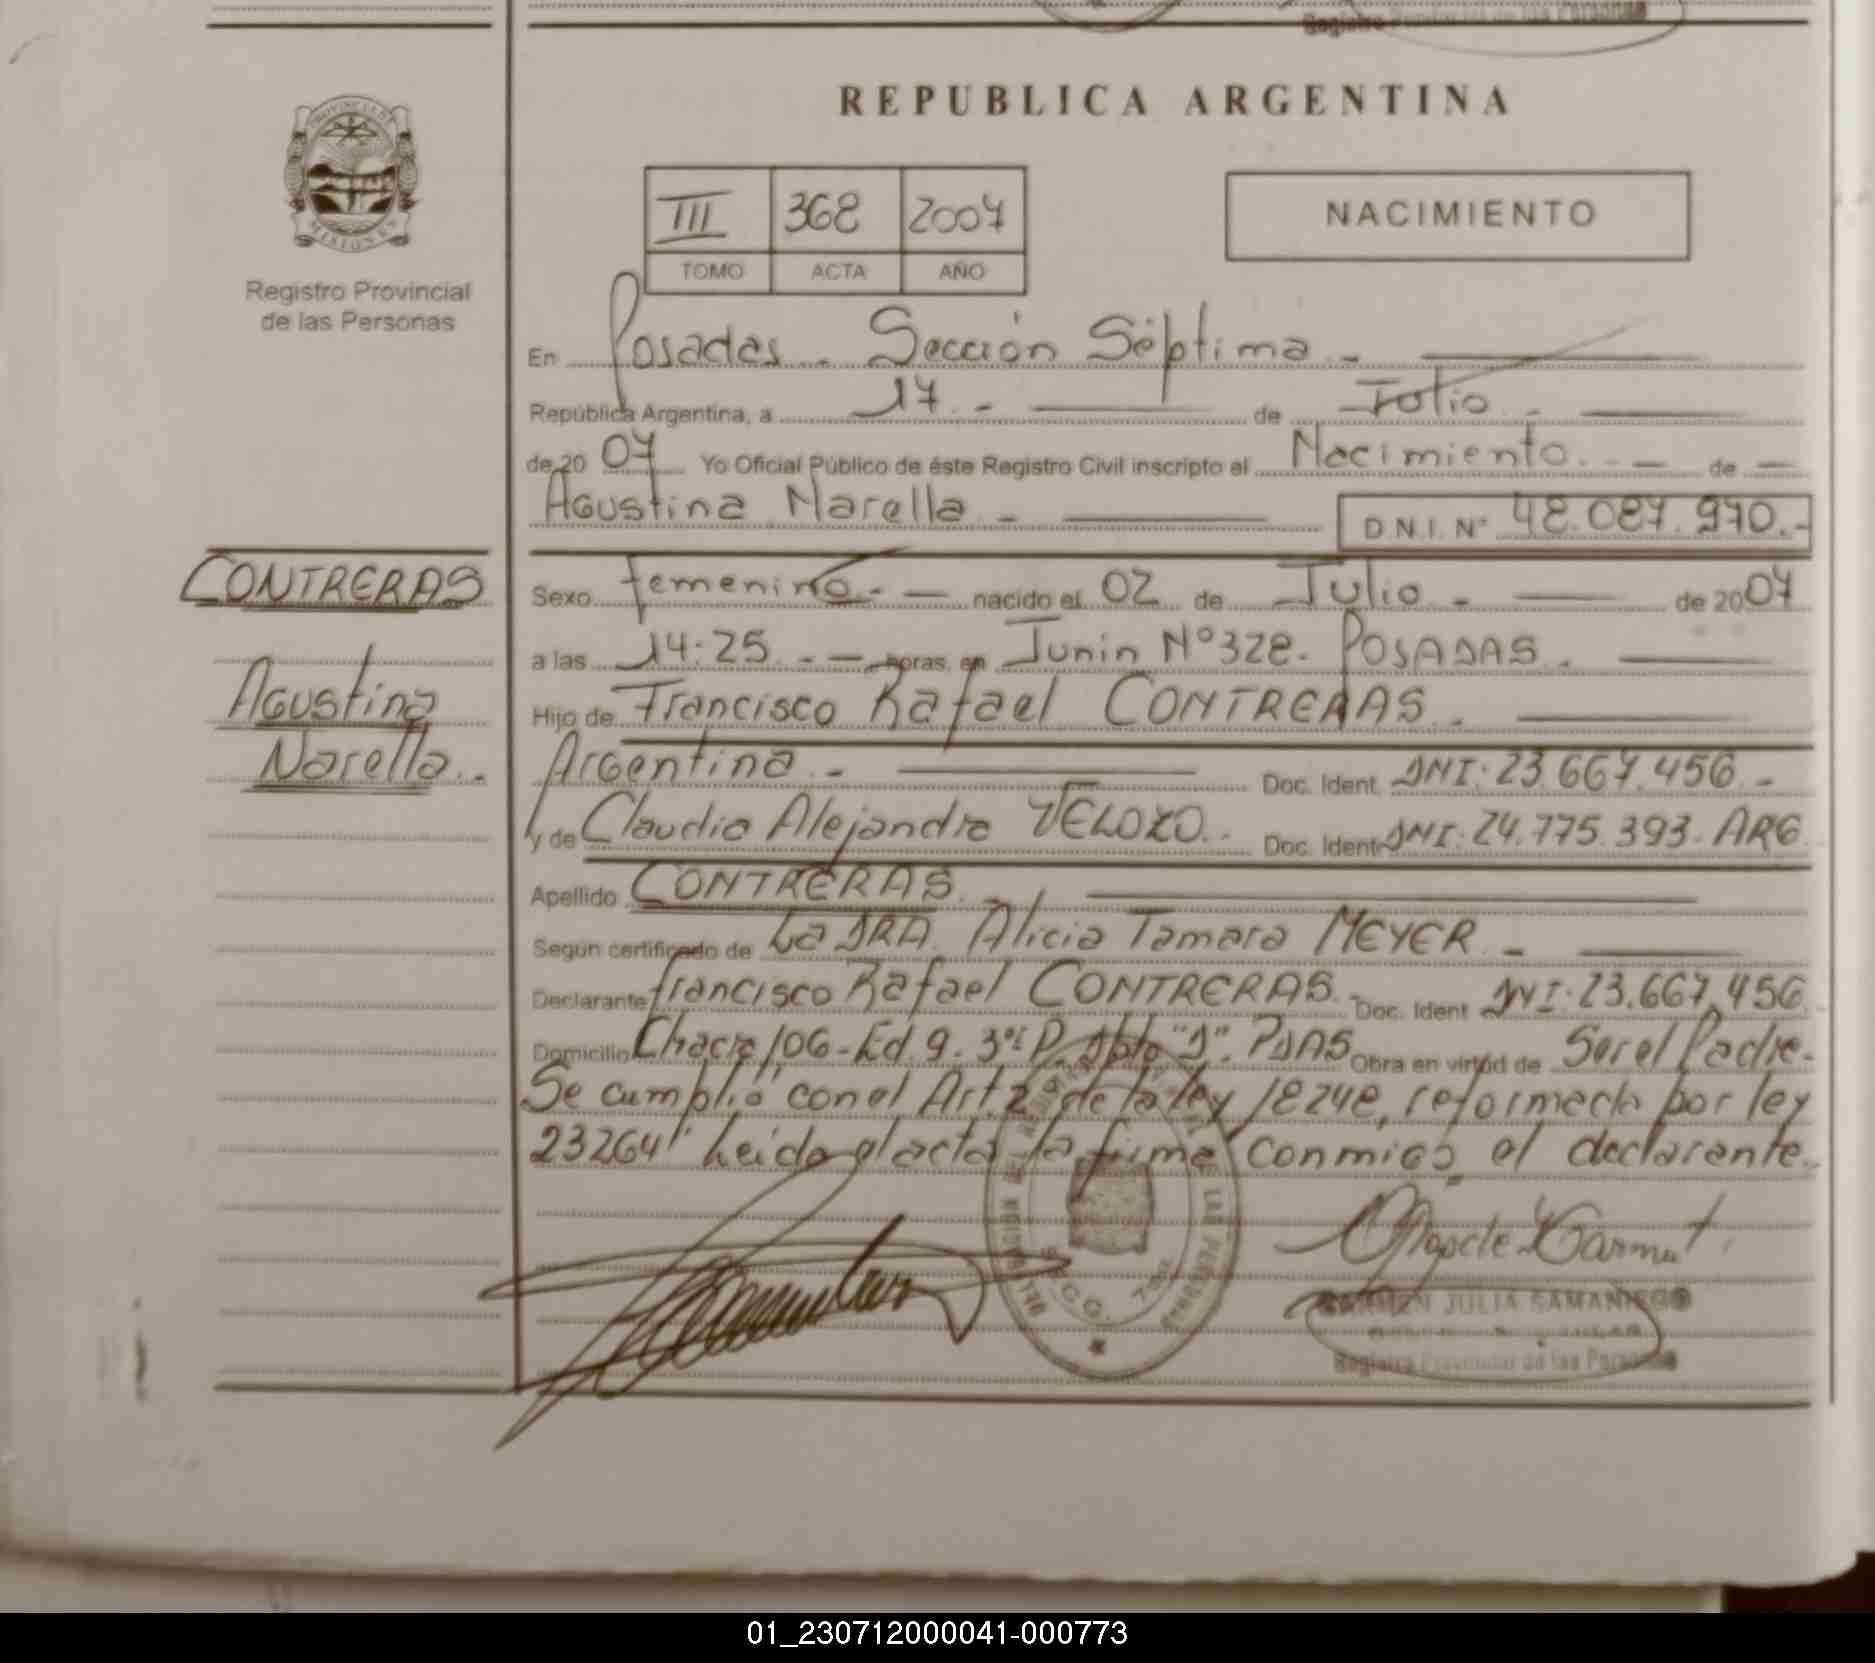 REPUBLICA ARGENTINA
PROVINCIA DE
MISIONES
Registro Provincial
de las Personas
III 368 2007
TOMO ACTA AÑO
NACIMIENTO
En Posadas - Sección Séptima -
República Argentina, a 17 - de Julio -
de 20 07 Yo Oficial Público de éste Registro Civil inscripto el Nacimiento. - - de -
Agustina Narella - D.N.I. N° 48.087.970.-
CONTRERAS
Agustina
Narella.-
Sexo femenino.- - nacido el 02 de Julio - de 20 07
a las 14:25 - - horas, en Junin N° 328. POSADAS.
Hijo de Francisco Rafael CONTRERAS.
Argentina - Doc. Ident. DNI: 23.667.456.-
y de Claudia Alejandra VELOZO. Doc. Ident. DNI: 24.775.393. ARG
Apellido CONTRERAS.
Según certificado de La DRA. Alicia Tamara MEYER -
Declarante Francisco Rafael CONTRERAS.- Doc. Ident DNI: 23.667.456
Domicilio Chacra 106-Ed. 9. 3er P. Dpto "D". PDAS Obra en virtud de Ser el Padre.
Se cumplió con el Art. 2° de la ley 18248, reformada por ley
23264" Leida el acta la firma conmigo el declarante.
CARMEN JULIA SAMANIEGO
Registro Provincial de las Personas
01_230712000041-000773